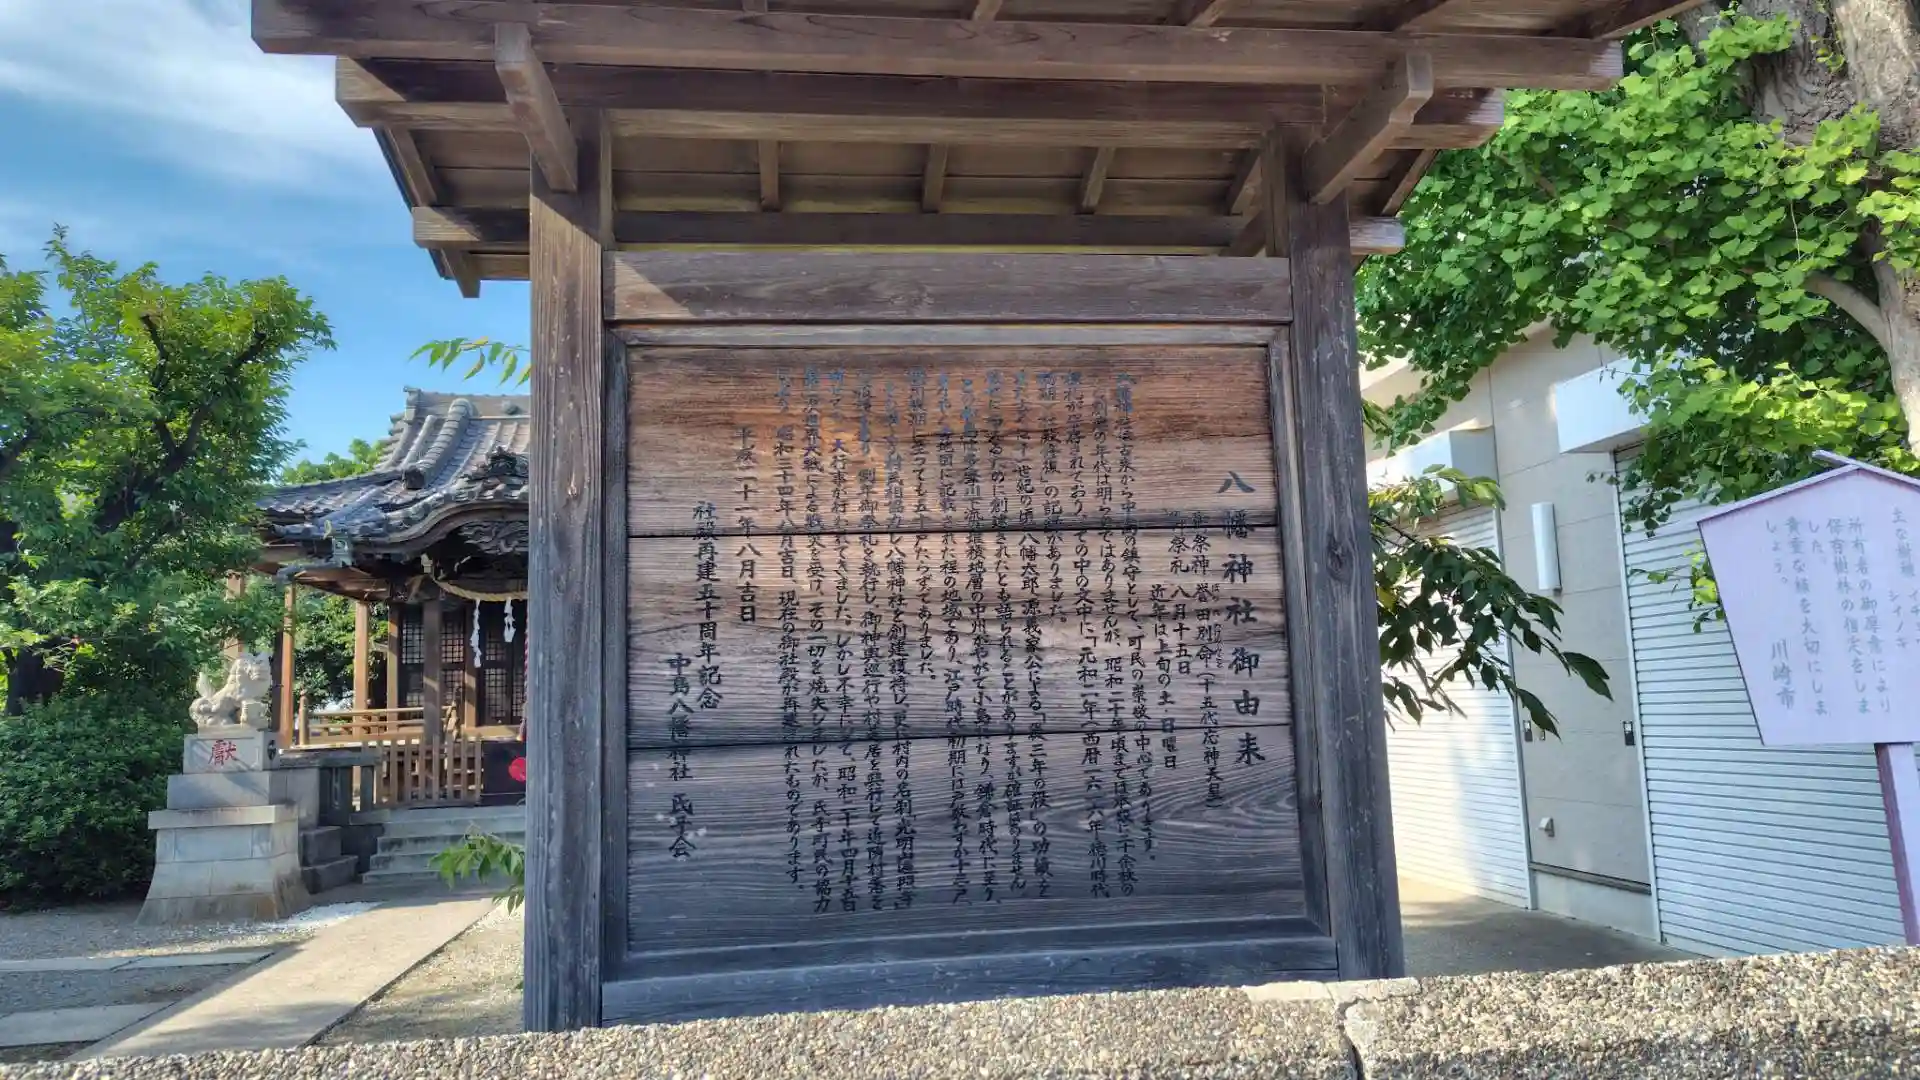 八幡神社御由来
御祭神 誉田別命(十五代応神天皇)
御祭礼 八月十五日
近年は上旬の土・日曜日
八幡神社は古来から中島の鎮守として、町民の崇敬の中心であります。
創建の年代は明らかではありませんが、昭和二十年頃までは本殿に千余枚の
棟札が保存されており、その中の文中に「元和二年(西暦一六一六年徳川時代
初期)社殿修復」の記録がありました。
また古くは十一世紀の頃、八幡太郎 源義家公による「後三年の役」の功績を
に創建されたとも語られることがありますが確証はありません。
この中島は多摩川の流域堆積地層の中州がやがて小島になり、鎌倉時代に至り
地図に記載された程の地域であり、江戸時代初期には戸数わずか十三戸、
に至っても五十戸たらずでありました。
相協力し八幡神社を創建護持し、更に村内の名刹「光明山遍照寺」
例年御祭礼を執行し、御神輿巡行や村芝居を興行して近隣村落を
大行事が行われてきました。しかし不幸にして、昭和二十年四月十五日
世界大戦による戦災を受け、その一切を焼失しましたが、氏子町民の協力
により、昭和三十四年八月吉日、現在の御社殿が再建されたものであります。
平成二十一年八月吉日
社殿再建五十周年記念
中島八幡神社 氏子会
献
主な樹種 イチョウ
シイノキ
所有者の御厚意により
保存樹林の指定をしま
した。
貴重な緑を大切にしま
しょう。
川崎市